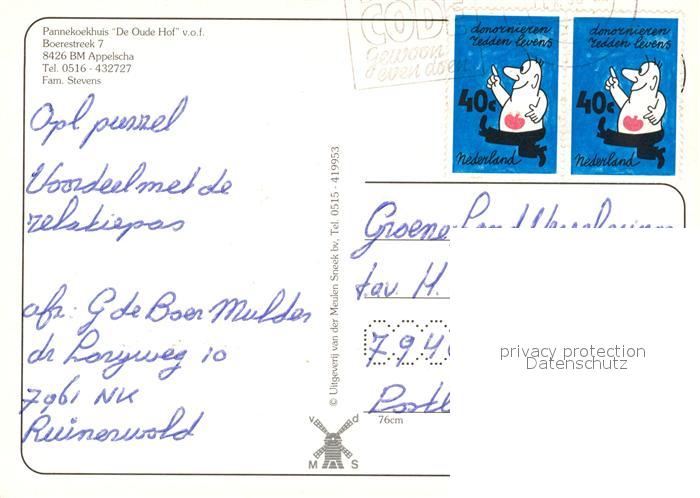 Pannekoekhuis "De Oude Hof" v.o.f.
Boerestreek 7
8426 BM Appelscha
Tel. 0516 - 432727
Fam. Stevens
CODE
gewoon
even doen
donornieren
redden levens
40c
Nederland
donornieren
redden levens
40c
Nederland
Opl puzzel
Voordeel met de
relatiepas
afz: G de Boer Mulder
dr Larijweg 10
7961 NK
Ruinerwold
© Uitgeverij van der Meulen Sneek bv, Tel. 0515 - 419953
v d
M S
76cm
Groene Land
tav H.
794
privacy protection
Datenschutz